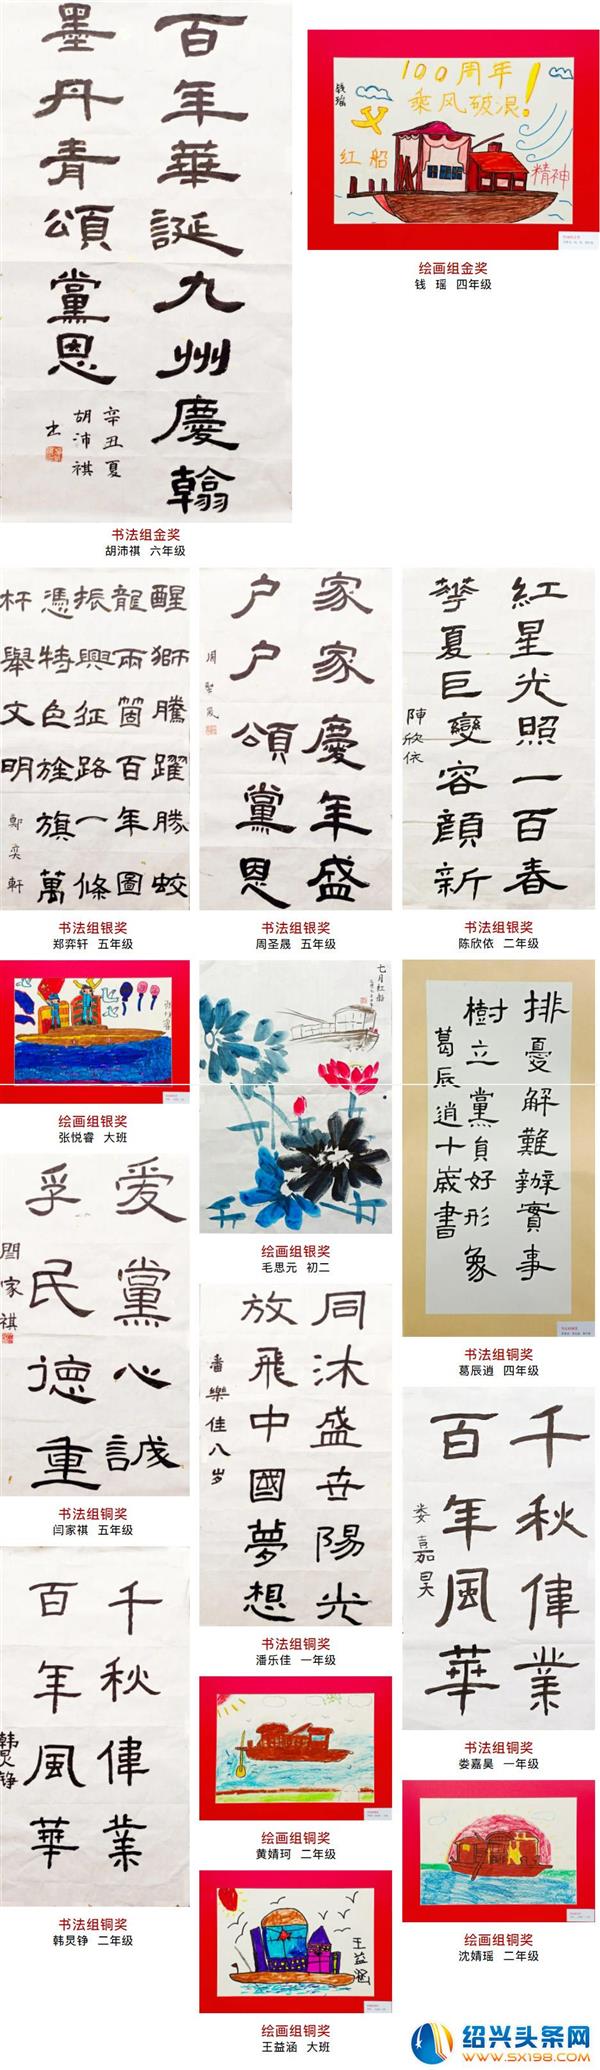 百年華誕九州慶翰
墨丹青頌黨恩
辛丑夏
胡沛祺
书法组金奖
胡沛祺 六年级
100周年
乘风破浪!
钱瑶
红船
精神
绘画组金奖
钱 瑶 四年级
醒獅騰躍勝蛟
龍兩箇百年圖
振興征路一條
憑特色旌旗萬
杆舉文明
鄭奕軒
书法组银奖
郑弈轩 五年级
家家慶年盛
户户頌黨恩
周聖晟
书法组银奖
周圣晟 五年级
紅星光照一百春
華夏巨變容顔新
陳欣依
书法组银奖
陈欣依 二年级
绘画组银奖
张悦睿 大班
七月红船
绘画组银奖
毛思元 初二
排憂解難辦實事
樹立黨員好形象
葛辰逍十歲書
书法组铜奖
葛辰逍 四年级
爱黨心誠
孚民德重
閆家祺
书法组铜奖
闫家祺 五年级
同沐盛世陽光
放飛中國夢想
潘樂佳八岁
书法组铜奖
潘乐佳 一年级
千秋偉業
百年風華
娄嘉昊
书法组铜奖
娄嘉昊 一年级
千秋偉業
百年風華
韩炅铮
书法组铜奖
韩炅铮 二年级
绘画组铜奖
黄婧珂 二年级
绘画组铜奖
沈婧瑶 二年级
王益涵
绘画组铜奖
王益涵 大班
绍兴头条网
www.SX198.com